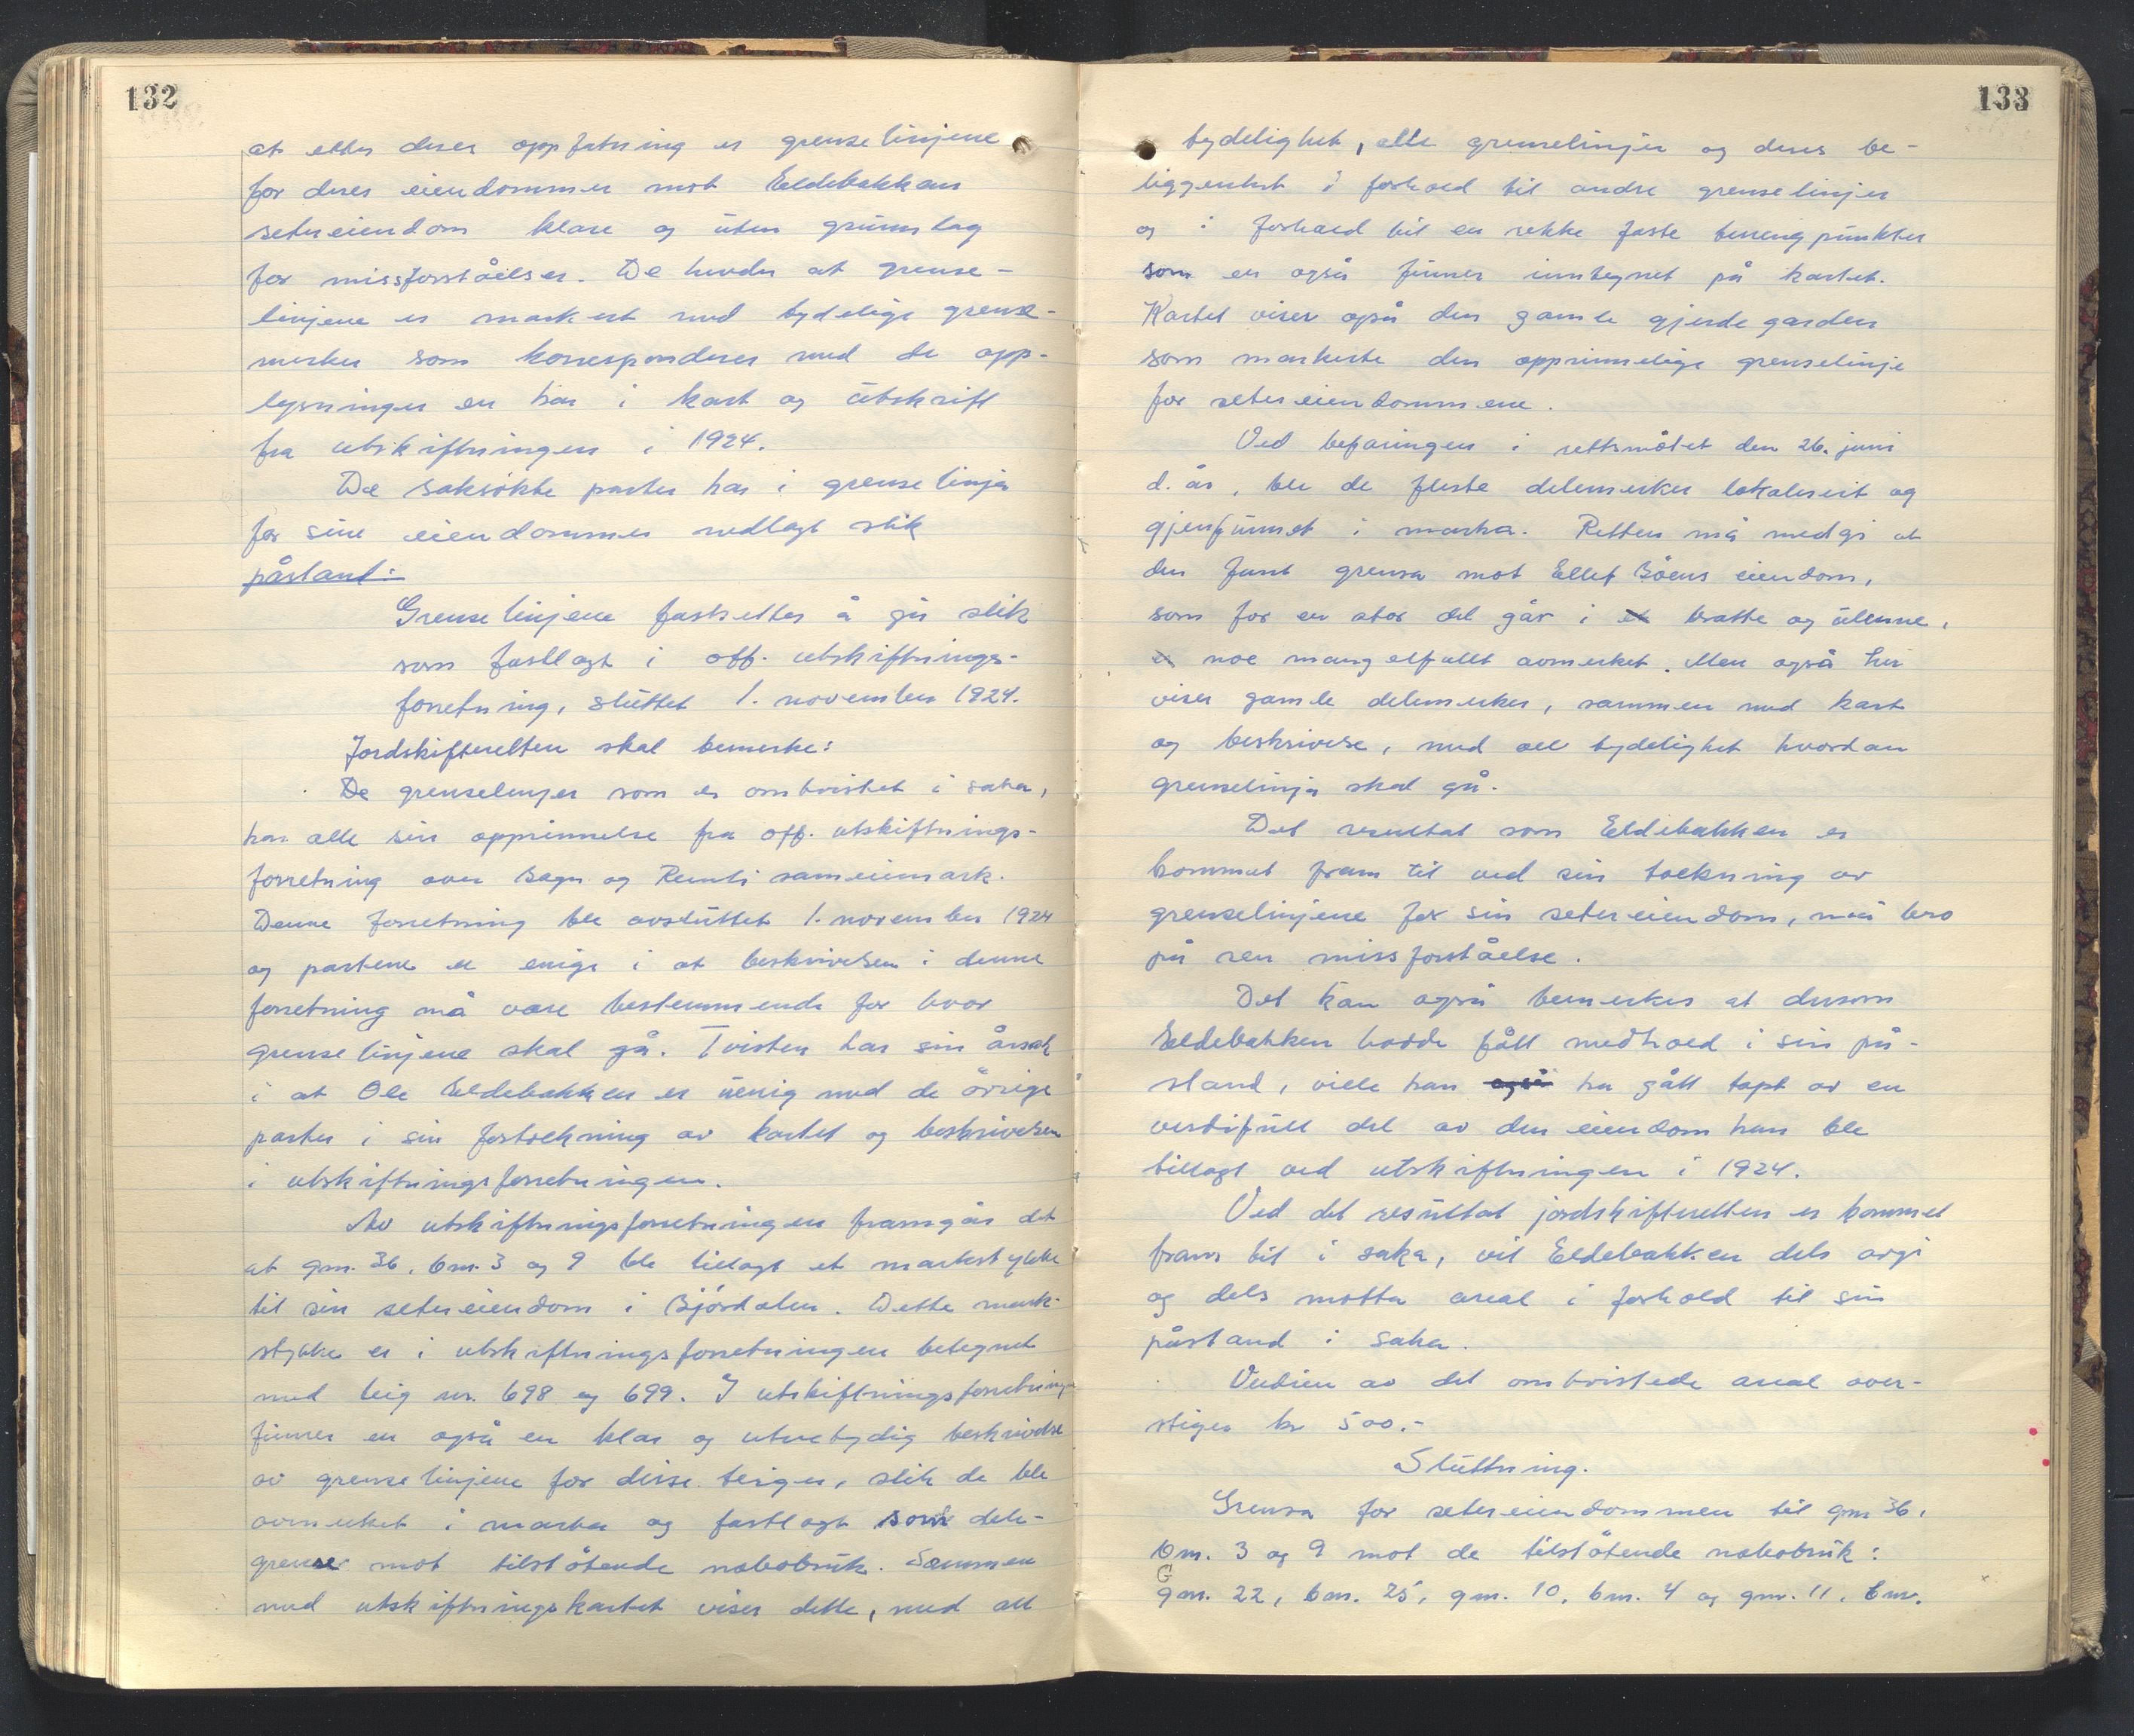 132
at etter deres oppfatning er grenselinjene
for deres eiendommer mot Eldebakkens
setereiendom klare og uten grunnlag
for missforståelser. De hevder at grense-
linjene er markert med tydelige grense-
merker som korresponderer med de opp-
lysninger en har i kart og utskrift
fra utskiftningen i 1924.
De saksökte parter har i grenselinja
for sine eiendommer nedlagt slik
påstand:
Grenselinjene fastsettes å gå slik
som fastlagt i off. utskiftnings-
forretning, sluttet 1. november 1924.
Jordskifteretten skal bemerke:
De grenselinjer som er omtvistet i saka,
har alle sin opprinnelse fra off. utskiftnings-
forretning over Bagn og Reinli sameiemark.
Denne forretning ble avsluttet 1. november 1924
og partene er enige i at beskrivelsen i denne
forretning må være bestemmende for hvor
grenselinjene skal gå. Tvisten har sin årsak
i at Ole Eldebakken er uenig med de övrige
parter i sin fortolkning av kartet og beskrivelsen
i utskiftningsforretningen.
Av utskiftningsforretningen framgår det
at gnr. 36, bnr. 3 og 9 ble tillagt et markstykke
til sin setereiendom i Björdalen. Dette mark-
stykke er i utskiftningsforretningen betegnet
med teig nr. 698 og 699. I utskiftningsforretningen
finner en også en klar og utvetydig beskrivelse
av grenselinjene for disse teiger, slik de ble
avmerket i marka og fastlagt som dele-
grenser mot tilstötende nabobruk. Sammen
med utskiftningskartet viser dette, med all
133
tydelighet, alle grenselinjer og deres be-
liggenhet i forhold til andre grenselinjer
og i forhold til en rekke faste terrengpunkter
som en også finner inntegnet på kartet.
Kartet viser også den gamle gjerdegarden
som markerte den opprinnelige grenselinje
for setereiendommene.
Ved befaringen i rettsmötet den 26. juni
d. år, ble de fleste delemerker lokalisert og
gjenfunnet i marka. Retten må medgi at
den fant grensa mot Ellef Böens eiendom,
som for en stor del går i bratte og ulenne,
noe mangelfullt avmerket. Men også her
viser gamle delemerker, sammen med kart
og beskrivelse, med all tydelighet hvordan
grenselinja skal gå.
Det resultat som Eldebakken er
kommet fram til ved sin tolkning av
grenselinjene for sin setereiendom, må bero
på ren missforståelse.
Det kan også bemerkes at dersom
Eldebakken hadde fått medhold i sin på-
stand, ville han også ha gått tapt av en
verdifull del av den eiendom han ble
tillagt ved utskiftningen i 1924.
Ved det resultat jordskifteretten er kommet
fram til i saka, vil Eldebakken dels avgi
og dels motta areal i forhold til sin
påstand i saka.
Verdien av det omtvistede areal over-
stiger kr 500.-
Sluttning.
Grensa for setereiendommen til gnr 36,
bnr. 3 og 9 mot de tilstötende nabobruk:
Gnr. 22, bnr. 25, gnr. 10, bnr. 4 og gnr. 11, bnr.